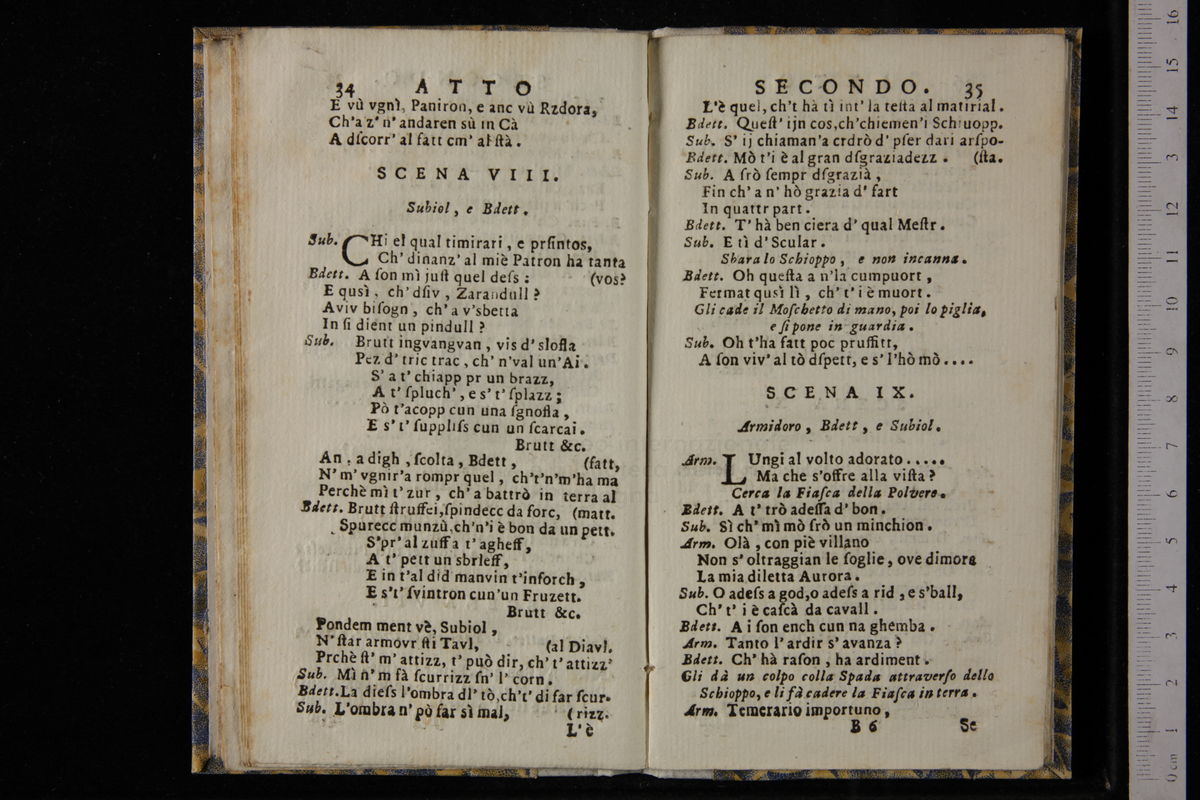 34 ATTO
E vù vgnì, Paniron, e anc vù Rzdora,
Ch'a z' n' andaren sù in Cà
A dſcorr' al fatt cm' al ſtà.
SCENA VIII.
Subiol, e Bdett.
Sub. CHi el qual timirari, e prſintos,
Ch' dinanz' al miè Patron ha tanta
Bdett. A ſon mì juſt quel deſs: (vos?
E qusì, ch' dſiv, Zarandull?
Aviv biſogn, ch' a v'sbetta
In ſi dient un pindull?
Sub. Brutt ingvangvan, vis d' sloffa
Pez d' tric trac, ch' n'val un'Ai.
S' a t' chiapp pr un brazz,
A t' ſpluch', e s' t' ſplazz;
Pò t'acopp cun una ſgnoffa,
E s' t' ſuppliſs cun un ſcarcai.
Brutt &c.
An, a digh, ſcolta, Bdett, (fatt,
N' m' vgnir'a rompr quel, ch't'n'm'ha ma
Perchè mì t' zur, ch' a battrò in terra al
Bdett. Brutt ſtruffei, ſpindecc da forc, (matt.
Spurecc munzù, ch'n'i è bon da un pett.
S'pr' al zuffa t' agheff,
A t' pett un sbrleff,
E in t'al did manvin t'inforch,
E s't' ſvintron cun'un Fruzett.
Brutt &c.
Pondem ment vè, Subiol,
N' ſtar armovr ſti Tavl, (al Diavl.
Prchè ſt' m' attizz, t' può dir, ch' t' attizz'
Sub. Mì n' m fà ſcurrizz ſn' l' corn.
Bdett. La dieſs l'ombra dl' tò, ch't' di far ſcur-
Sub. L'ombra n' pò far sì mal, (rizz.
L'è
SECONDO. 35
L'è quel, ch't hà tì int' la teſta al matirial.
Bdett. Queſt' ijn cos, ch'chiemen'i Schiuopp.
Sub. S' ij chiaman'a crdrò d' pſer dari arſpo-
Bdett. Mò t'i è al gran dſgraziadezz. (ſta.
Sub. A ſrò ſempr dſgrazià,
Fin ch' a n' hò grazia d' fart
In quattr part.
Bdett. T' hà ben ciera d' qual Meſtr.
Sub. E tì d' Scular.
Sbara lo Schioppo, e non incanna.
Bdett. Oh queſta a n'la cumpuort,
Fermat qusì lì, ch' t' i è muort.
Gli cade il Moſchetto di mano, poi lo piglia,
e ſi pone in guardia.
Sub. Oh t'ha fatt poc pruffitt,
A ſon viv' al tò dſpett, e s' l'hò mò....
SCENA IX.
Armidoro, Bdett, e Subiol.
Arm. LUngi al volto adorato.....
Ma che s'offre alla viſta?
Cerca la Fiaſca della Polvere.
Bdett. A t' trò adeſſa d' bon.
Sub. Sì ch' mì mò ſrò un minchion.
Arm. Olà, con piè villano
Non s' oltraggian le ſoglie, ove dimora
La mia diletta Aurora.
Sub. O adeſs a god, o adeſs a rid, e s'ball,
Ch' t' i è caſcà da cavall.
Bdett. A i ſon ench cun na ghemba.
Arm. Tanto l' ardir s' avanza?
Bdett. Ch' hà raſon, ha ardiment.
Gli dà un colpo colla Spada attraverſo dello
Schioppo, e li fà cadere la Fiaſca in terra.
Arm. Temerario importuno,
B 6 Se